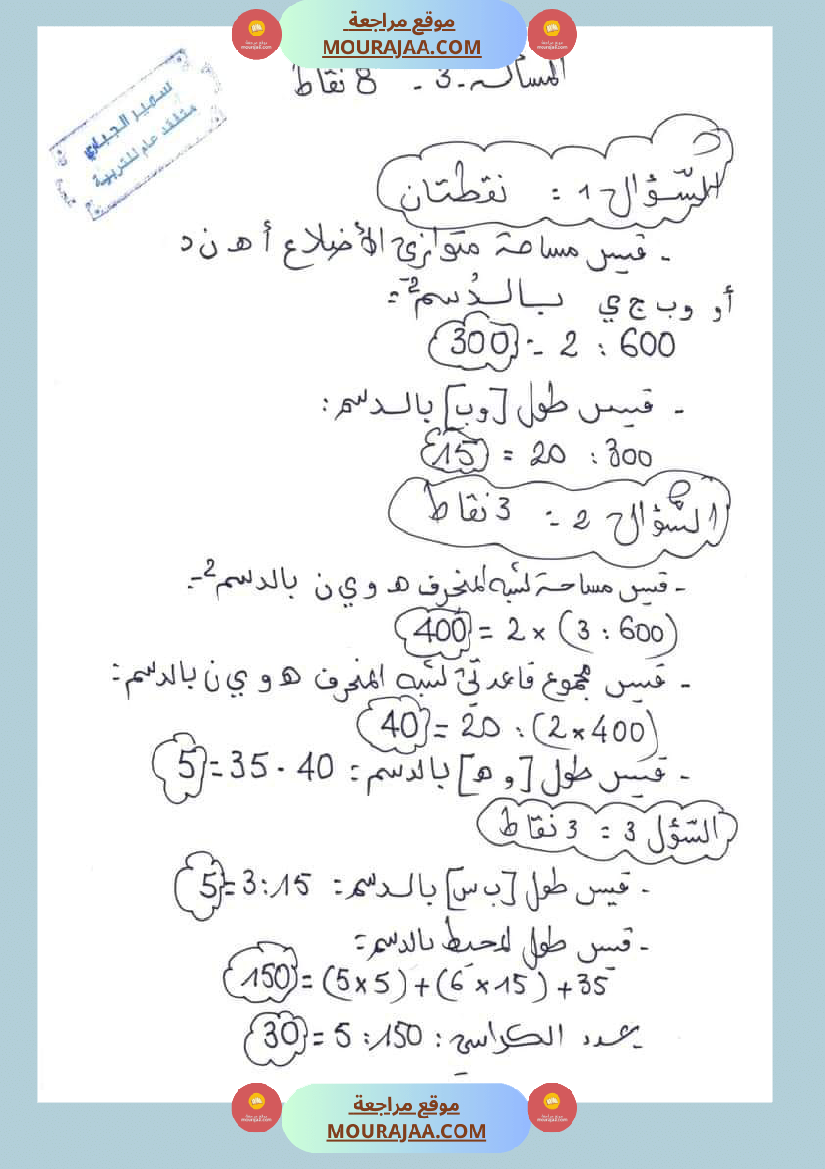 موقع مراجعة
MOURAJAA.COM
المسألة - 3 - 8 نقاط
سمير الجباري
متفقد عام للتربية
السّؤال 1 : نقطتان
- قيس مساحة متوازي الأضلاع أ ه ن د
أو و ب ج ي بالدُسم² :
600 : 2 = 300
- قيس طول [وب] بالدسم :
300 : 20 = 15
السّؤال 2 : 3 نقاط
- قيس مساحة شبه المنحرف ه و ي ن بالدسم² :
(600 : 3) × 2 = 400
- قيس مجموع قاعدتيْ شبه المنحرف ه و ي ن بالدسم :
(400 × 2) : 20 = 40
- قيس طول [و ه] بالدسم : 40 - 35 = 5
السّؤل 3 : 3 نقاط
- قيس طول [ب س] بالدسم : 15 : 3 = 5
- قيس طول المحيط بالدسم :
35 + (15 × 6) + (5 × 5) = 150
عدد الكراسي : 150 : 5 = 30
موقع مراجعة
MOURAJAA.COM